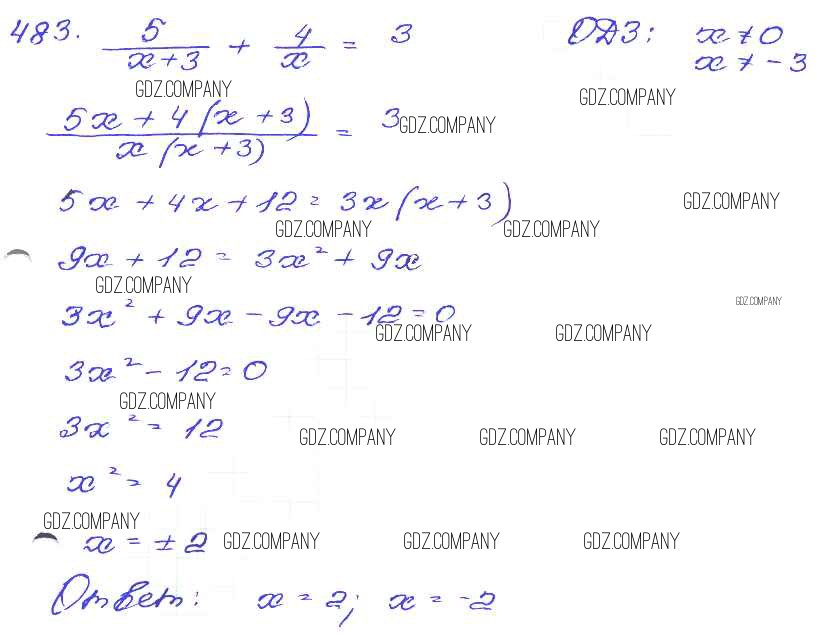 483. 5/(x+3) + 4/x = 3 ОДЗ: x ≠ 0
x ≠ -3
GDZ.COMPANY GDZ.COMPANY
(5x + 4(x+3))/(x(x+3)) = 3 GDZ.COMPANY
5x + 4x + 12 = 3x(x+3) GDZ.COMPANY
GDZ.COMPANY GDZ.COMPANY
9x + 12 = 3x² + 9x
GDZ.COMPANY GDZ.COMPANY
3x² + 9x - 9x - 12 = 0
GDZ.COMPANY GDZ.COMPANY
3x² - 12 = 0
GDZ.COMPANY
3x² = 12 GDZ.COMPANY GDZ.COMPANY GDZ.COMPANY
x² = 4
GDZ.COMPANY
x = ± 2 GDZ.COMPANY GDZ.COMPANY GDZ.COMPANY
Ответ: x = 2; x = -2